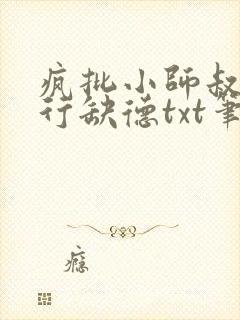 疯批小师叔
行缺德txt笔
瘾